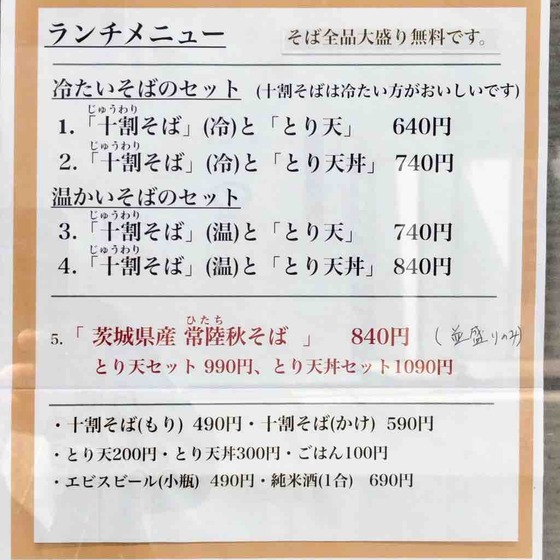 ランチメニュー
そば全品大盛り無料です。
冷たいそばのセット (十割そばは冷たい方がおいしいです)
じゅうわり
1.「十割そば」(冷)と「とり天」 640円
じゅうわり
2.「十割そば」(冷)と「とり天丼」 740円
温かいそばのセット
じゅうわり
3.「十割そば」(温)と「とり天」 740円
じゅうわり
4.「十割そば」(温)と「とり天丼」 840円
ひたち
5.「 茨城県産 常陸秋そば 」 840円 (並盛りのみ)
とり天セット 990円、とり天丼セット1090円
・十割そば(もり) 490円・十割そば(かけ) 590円
・とり天200円・とり天丼300円・ごはん100円
・エビスビール(小瓶) 490円・純米酒(1合) 690円